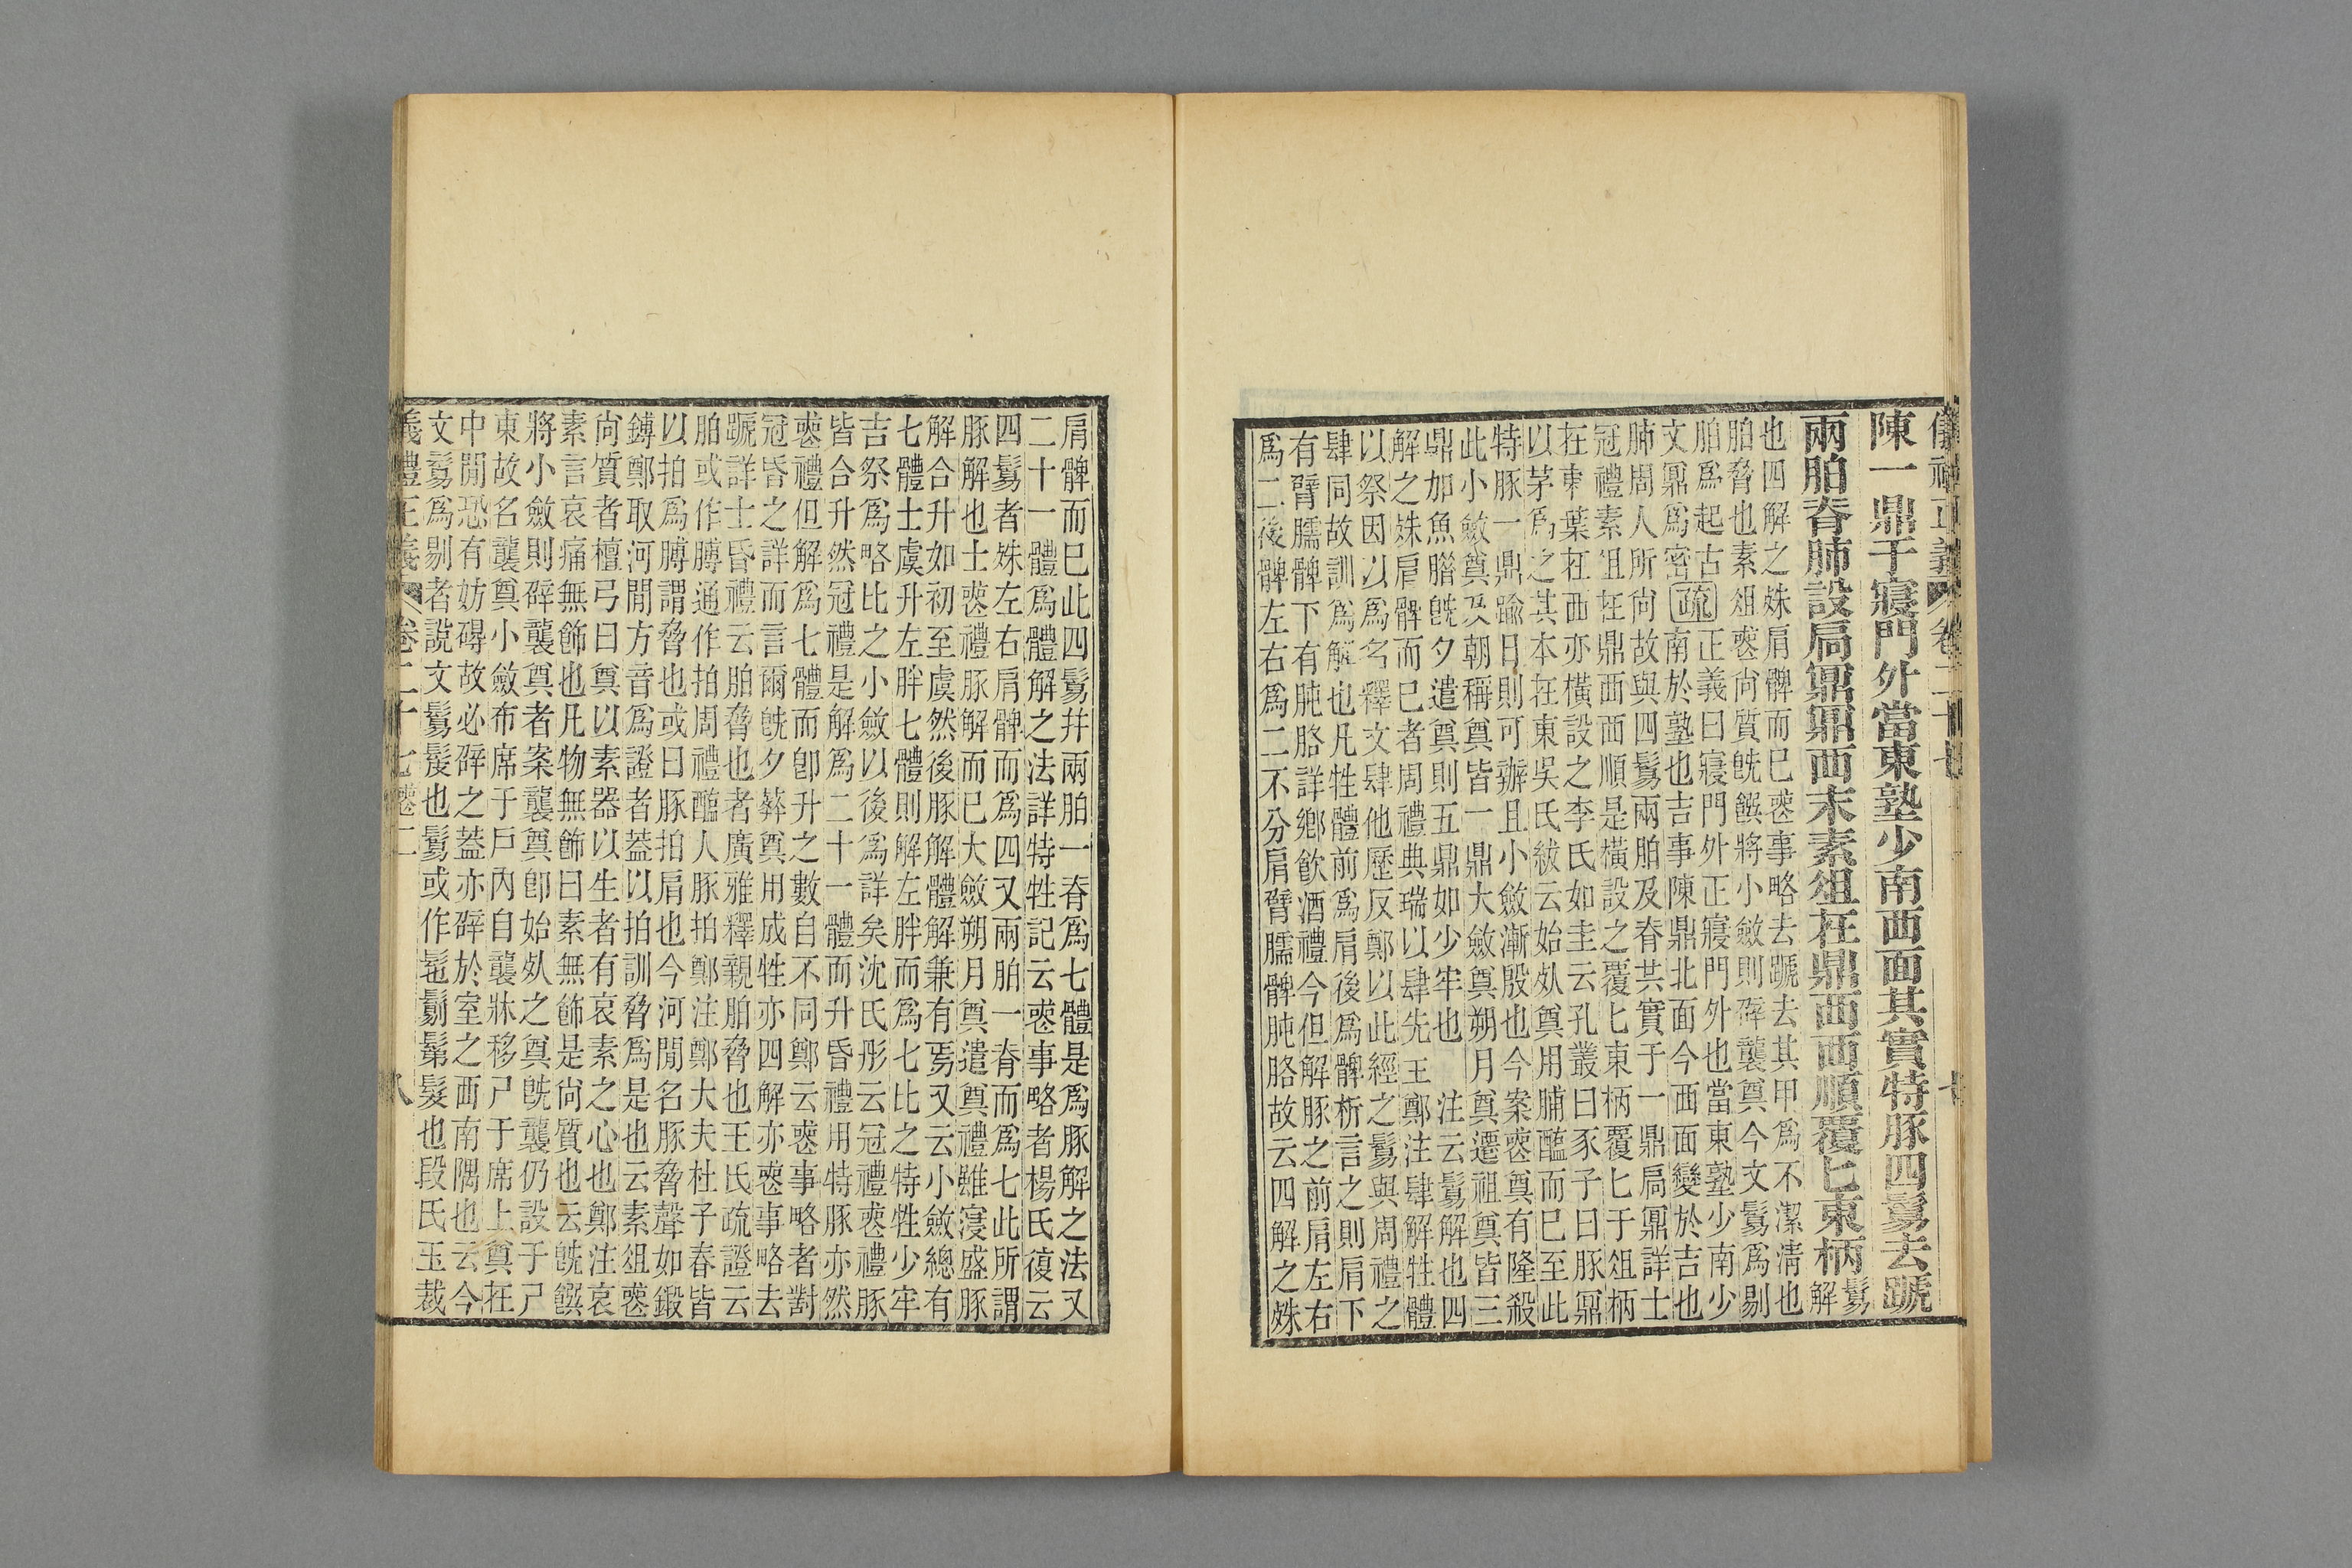 儀禮正義 卷二十七 七
陳一鼎于寢門外當東塾少南西面其實特豚四鬄去蹏
兩胉脊肺設扃鼏鼏西末素俎在鼎西西順覆匕東柄鬄解
也四解之殊肩髀而已喪事略去蹏去其甲爲不潔淸也
胉脅也素俎喪尙質旣饌將小斂則辟襲奠今文鬄爲剔
胉爲起古疏正義曰寢門外正寢門外也當東塾少南少
文鼏爲密南於塾也吉事陳鼎北面今西面變於吉也
肺周人所尙故與四鬄兩胉及脊共實于一鼎扃鼏詳士
冠禮素俎在鼎西西順是橫設之覆匕東柄覆匕于俎柄
在東葉在西亦橫設之李氏如圭云孔叢曰豕子曰豚鼏
以茅爲之其本在東吳氏紱云始死奠用脯醢而已至此
特豚一鼎踰日則可辦且小斂漸殷也今案喪奠有隆殺
此小斂奠及朝稱奠皆一鼎大斂奠朔月奠遷祖奠皆三
鼎加魚腊旣夕遣奠則五鼎如少牢也 注云鬄解也四
解之殊肩髀而已者周禮典瑞以肆先王鄭注肆解牲體
以祭因以爲名釋文肆他歷反鄭以此經之鬄與周禮之
肆同故訓爲解也凡牲體前爲肩後爲髀析言之則肩下
有臂臑髀下有肫胳詳鄉飮酒禮今但解豚之前肩左右
爲二後髀左右爲二不分肩臂臑髀肫胳故云四解之殊
肩髀而已此四鬄幷兩胉一脊爲七體是爲豚解之法又
二十一體爲體解之法詳特牲記云喪事略者楊氏復云
四鬄者殊左右肩髀而爲四又兩胉一脊而爲七此所謂
豚解也士喪禮豚解而已大斂朔月奠遣奠禮雖寖盛豚
解合升如初至虞然後豚解體解兼有焉又云小斂總有
七體士虞升左胖七體則解左胖而爲七比之特牲少牢
吉祭爲略比之小斂以後爲詳矣沈氏彤云冠禮喪禮豚
皆合升然冠禮是解爲二十一體而升昏禮用特豚亦然
喪禮但解爲七體而卽升之數自不同鄭云喪事略者對
冠昏之詳而言爾旣夕葬奠用成牲亦四解亦喪事略去
蹏詳士昏禮云胉脅也者廣雅釋親胉脅也王氏疏證云
胉或作膊通作拍周禮醢人豚拍鄭注鄭大夫杜子春皆
以拍爲膊謂脅也或曰豚拍肩也今河閒名豚脅聲如鍛
鎛鄭取河閒方音爲證者蓋以拍訓脅爲是也云素俎喪
尙質者檀弓曰奠以素器以生者有哀素之心也鄭注哀
素言哀痛無飾也凡物無飾曰素無飾是尙質也云旣饌
將小斂則辟襲奠者案襲奠卽始死之奠旣襲仍設于尸
東故名襲奠小斂布席于戶內自襲牀移尸于席上奠在
中閒恐有妨碍故必辟之蓋亦辟於室之西南隅也云今
文鬄爲剔者說文鬄髲也鬄或作髢鬀髴髮也段氏玉裁
義禮正義 卷二十七 喪二 八